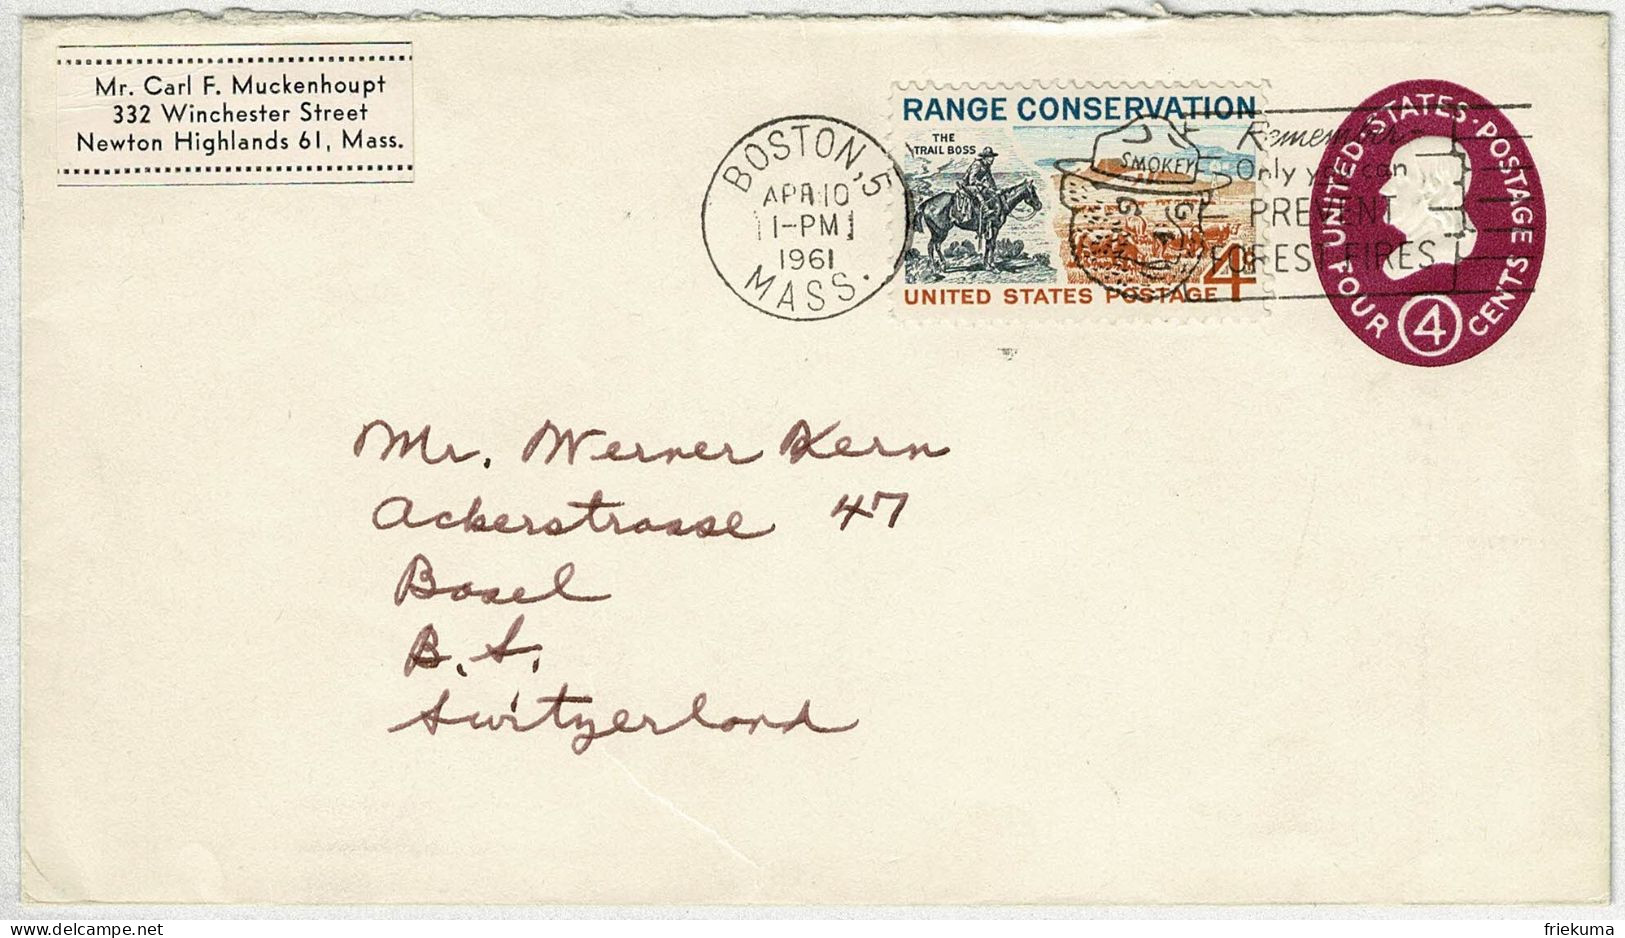 Mr. Carl F. Muckenhoupt
332 Winchester Street
Newton Highlands 61, Mass.
BOSTON, 5
APR 10
1-PM
1961
MASS.
RANGE CONSERVATION
THE
TRAIL BOSS
4
UNITED STATES POSTAGE
SMOKEY
Remember-
Only you can
PREVENT
FOREST FIRES
UNITED STATES · POSTAGE
FOUR 4 CENTS
Mr. Werner Kern
Ackerstrasse 47
Basel
B.S.
Switzerland
friekuma